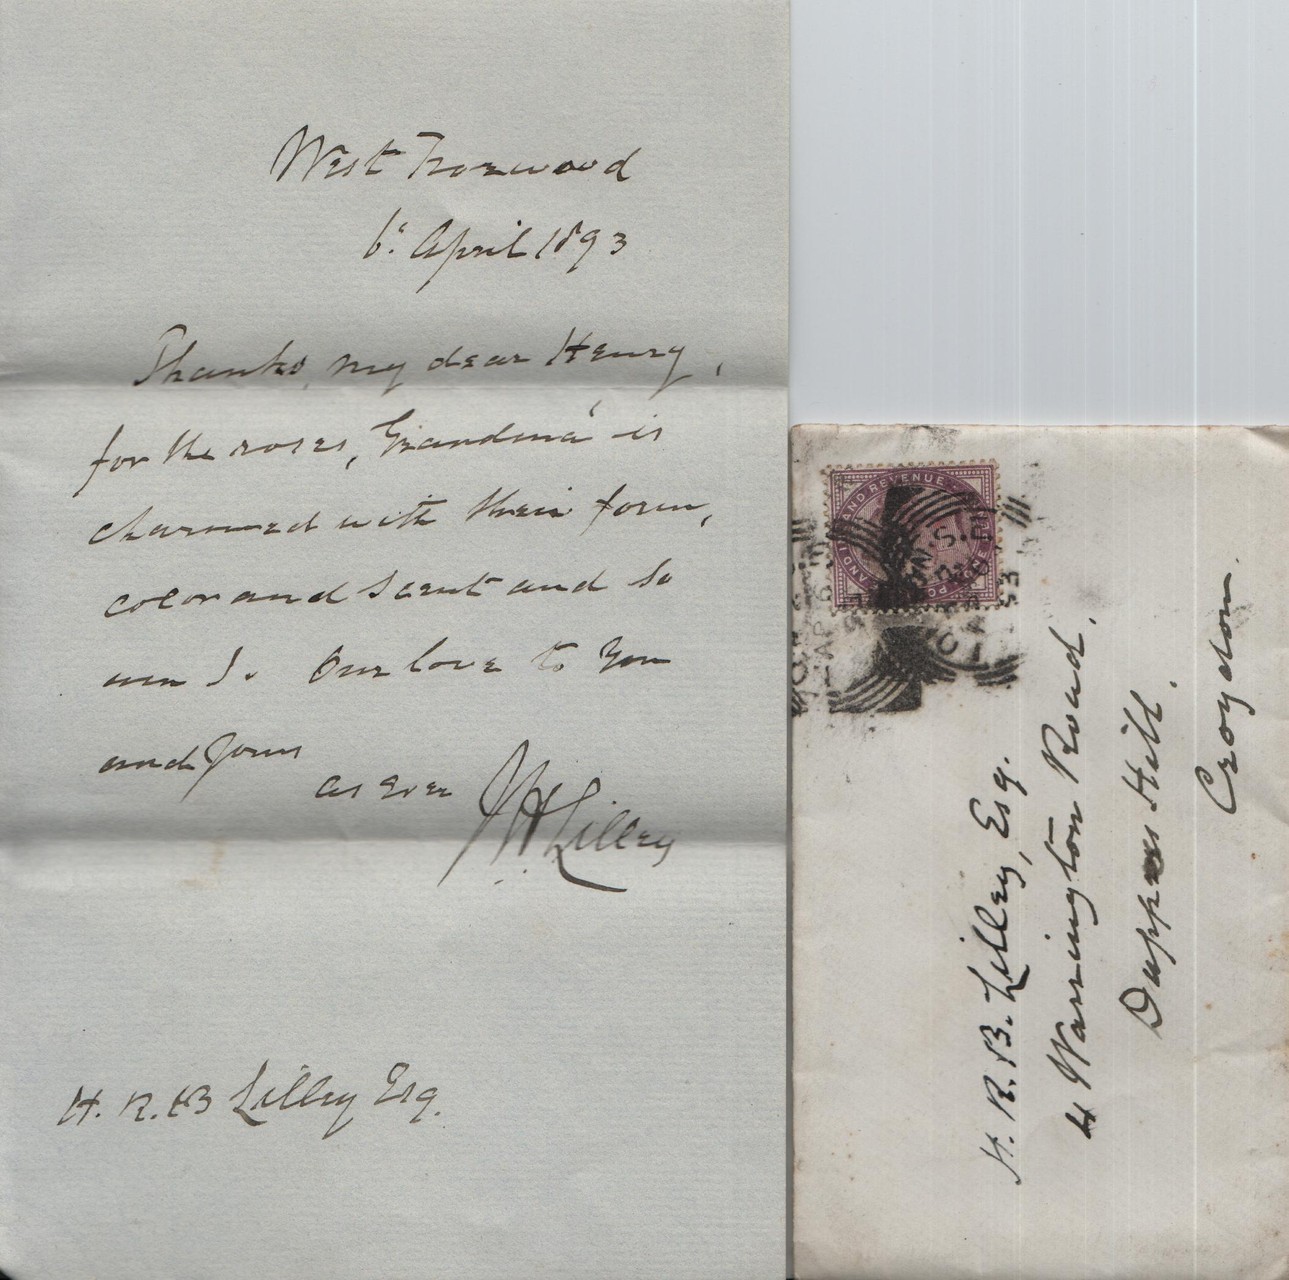 West Norwood
6: April 1893
Thanks, my dear Henry,
for the roses, Grandma' is
charmed with their form,
color and scent and so
am I. Our love to you
and yours
as ever J H Lilley
H. R. B Lilley Esq.
AND INLAND REVENUE
H. R. B. Lilley, Esq.
4 Warrington Road,
Duppas Hill.
Croydon.